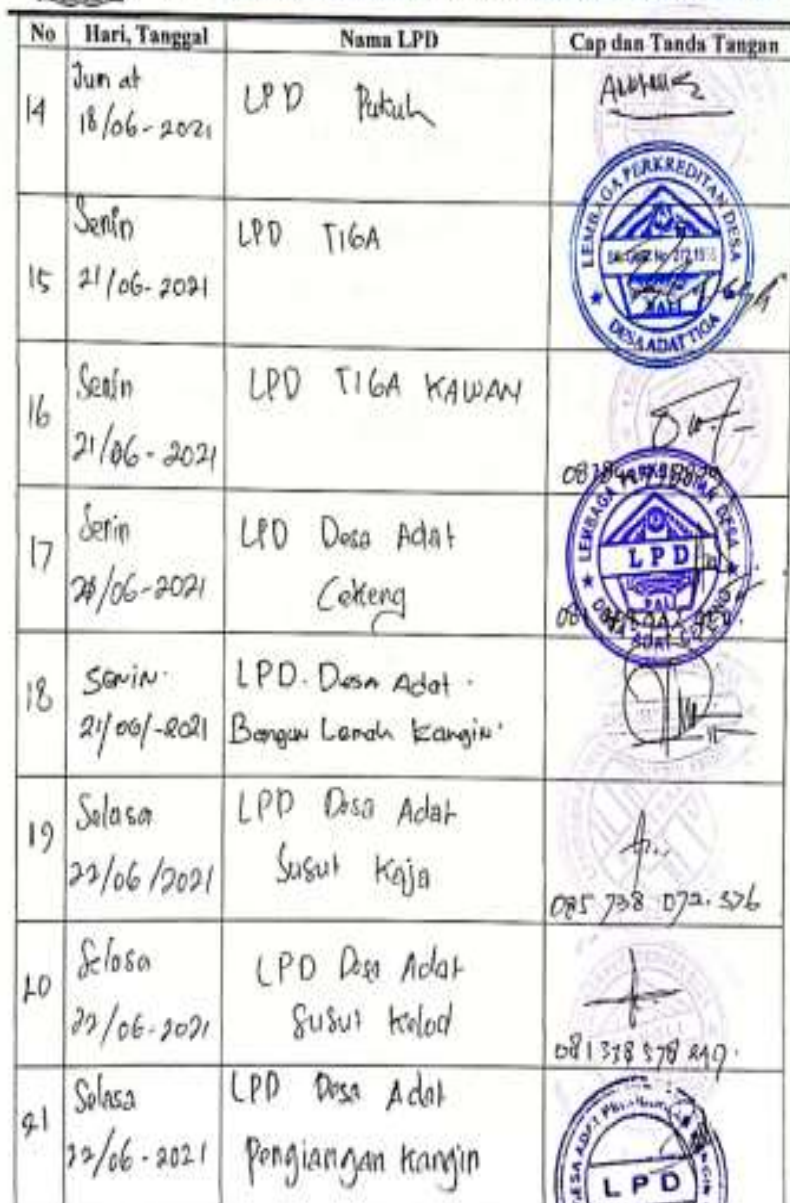 No Hari, Tanggal Nama LPD Cap dan Tanda Tangan
14
Jum at
18/06-2021
LPD Pukuh
LEMBAGA PERKREDITAN DESA
BALI
DESA ADAT TIGA
15
Senin
21/06-2021
LPD TIGA
16
Senin
21/06-2021
LPD TIGA KAWAN
17
Senin
21/06-2021
LPD Desa Adat
Cekeng
LEMBAGA PERKREDITAN DESA
LPD
BALI
DESA ADAT
18
SENIN.
21/06/-2021
LPD. Desa Adat.
Bangun Lemah Kangin.
19
Selasa
22/06/2021
LPD Desa Adat
Susut Kaja
085 738 072.376
20
Selasa
22/06-2021
LPD Desa Adat
Susut Kelod
081338578
21
Selasa
22/06-2021
LPD Desa Adat
Pengiangan Kangin
DESA ADAT
LPD